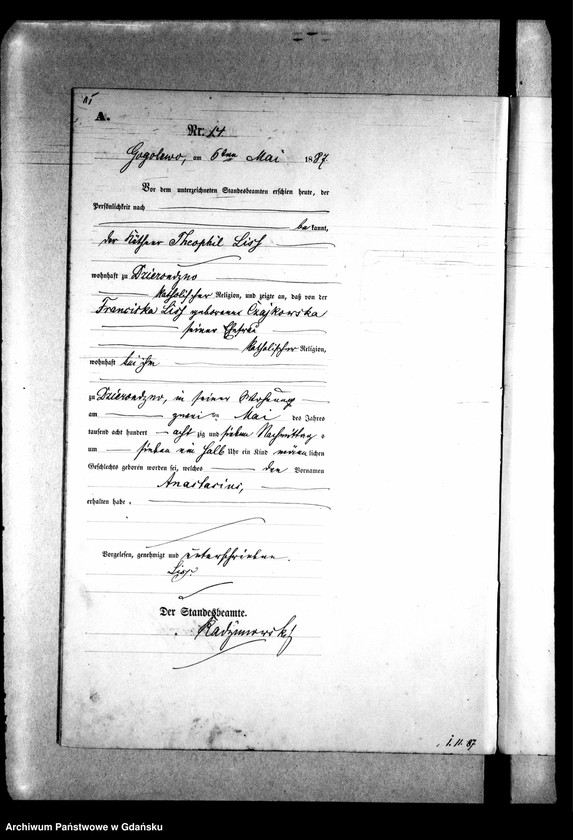 A.
Nr. 14
Gogolewo, am 6ten Mai 1887.
Vor dem unterzeichneten Standesbeamten erschien heute, der
Persönlichkeit nach
bekannt,
der Käthner Theophil Liss
wohnhaft zu Dzierondzno
katholischer Religion, und zeigte an, daß von der
Franciska Liss geborenen Czajkowska
seiner Ehefrau
katholischer Religion,
wohnhaft bei ihm
zu Dzierondzno, in seiner Wohnung
am zweiten Mai des Jahres
tausend acht hundert acht zig und sieben Nachmittag s
um sieben ein halb Uhr ein Kind männlichen
Geschlechts geboren worden sei, welches den Vornamen
Anastasius,
erhalten habe.
Vorgelesen, genehmigt und unterschrieben.
Liss.
Der Standesbeamte.
1. 11. 87
Archiwum Państwowe w Gdańsku